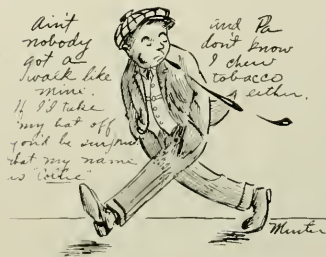 Ain't
nobody
got a
walk like
mine.
If I'd take
my hat off
you'd be surprised
that my name
is
and Pa
don't know
I chew
tobacco
either.
Minter